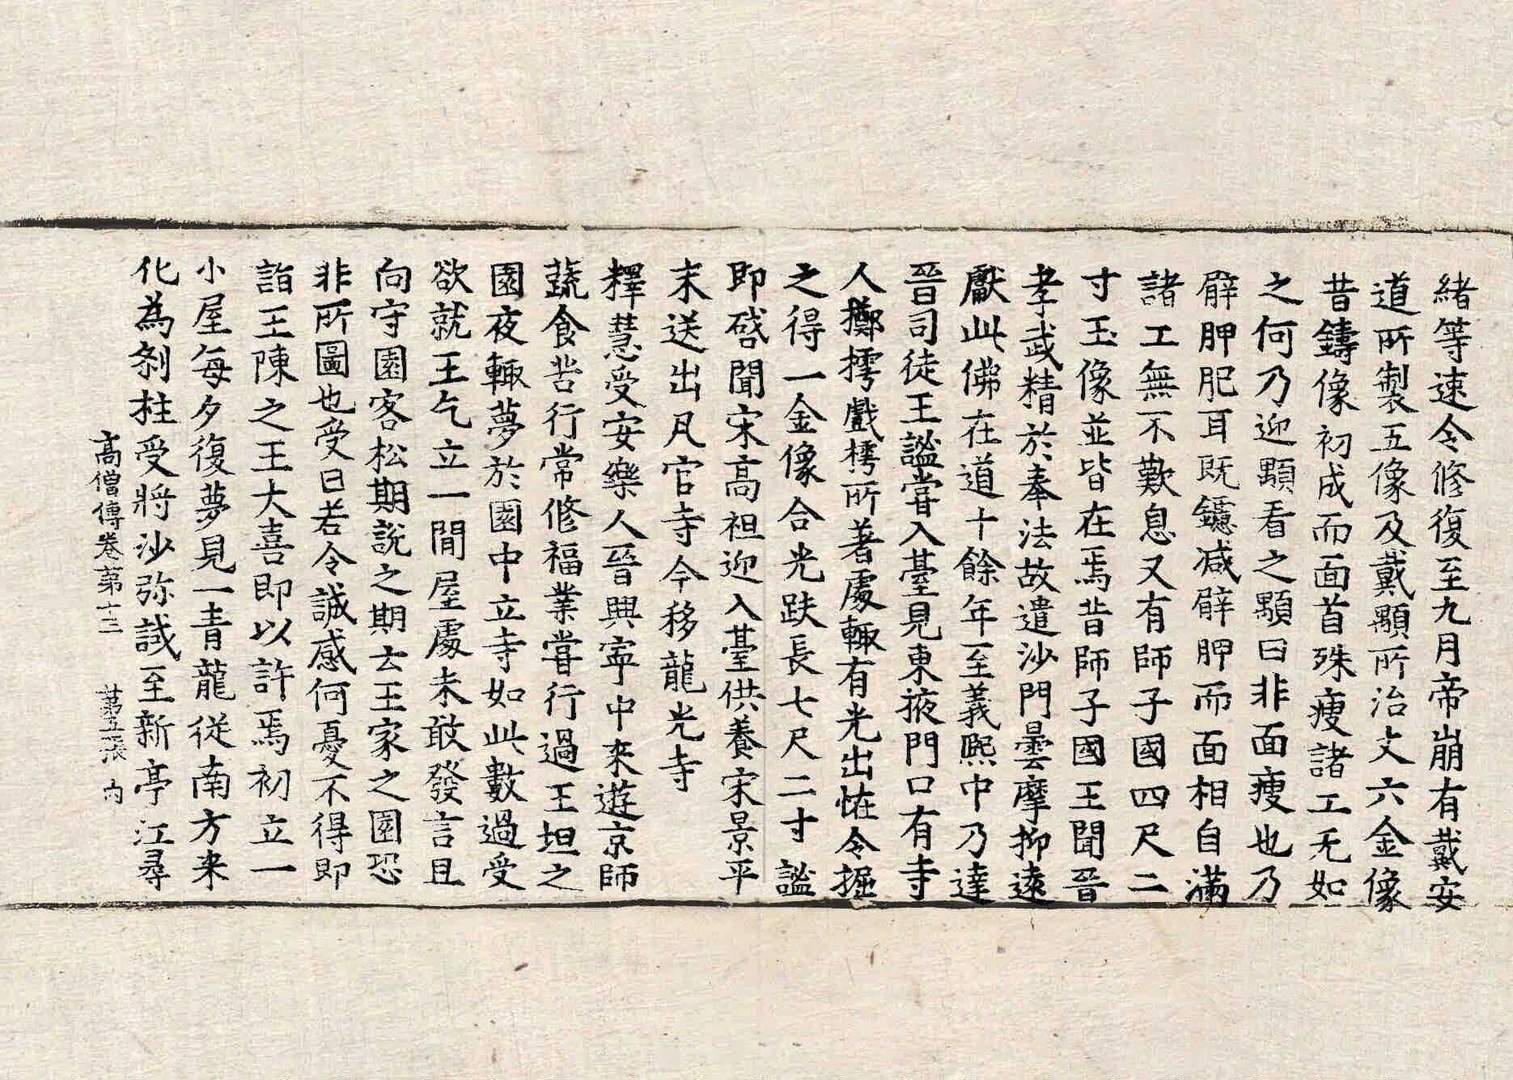 緒等速令修復至九月帝崩有戴安
道所製五像及戴顒所治丈六金像
昔鑄像初成而面首殊瘦諸工无如
之何乃迎顒看之顒曰非面瘦也乃
臂胛肥耳既鑢减臂胛而面相自滿
諸工無不歎息又有師子國四尺二
寸玉像並皆在焉昔師子國王聞晉
孝武精於奉法故遣沙門曇摩抑遠
獻此佛在道十餘年至義熙中乃達
晉司徒王謐嘗入臺見東掖門口有寺
人擲樗戲樗所著處輙有光出恠令掘
之得一金像合光趺長七尺二寸謐
即啓聞宋高祖迎入臺供養宋景平
末送出凡官寺今移龍光寺
釋慧受安樂人晉興寧中來遊京師
蔬食苦行常修福業嘗行過王坦之
園夜輙夢於園中立寺如此數過受
欲就王乞立一間屋處未敢發言且
向守園客松期說之期云王家之園恐
非所圖也受曰若令誠感何憂不得即
詣王陳之王大喜即以許焉初立一
小屋每夕復夢見一青龍從南方来
化為刹柱受將沙弥試至新亭江尋
高僧傳卷第十三 第五張 内